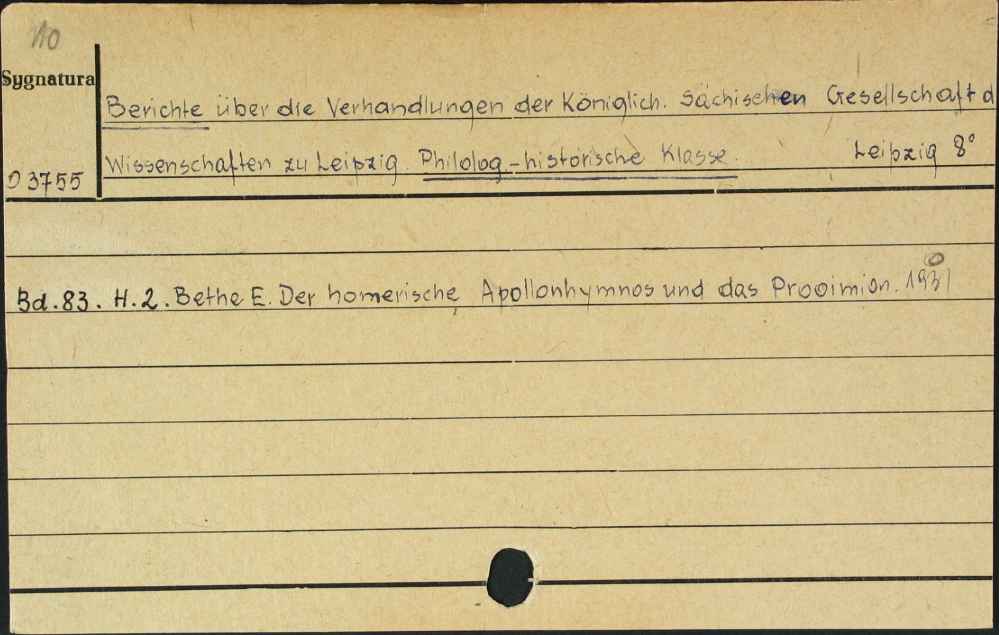 10
Sygnatura
Berichte über die Verhandlungen der Königlich. Sächischen Gesellschaft d
Wissenschaften zu Leipzig. Philolog.-historische Klasse. Leipzig 8°
03755
Bd. 83. H. 2. Bethe E. Der homerische Apollonhymnos und das Prooimion. 1931